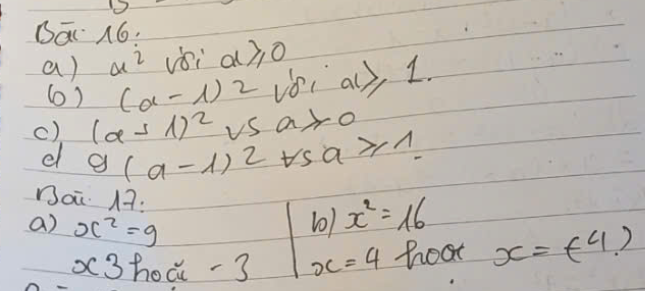 Bài 16:
a) a² với a ≥ 0
b) (a - 1)² với a ≥ 1.
c) (a + 1)² vs a ≥ 0
d 9 (a - 1)² vs a ≥ 1.
Bài 17:
a) x² = 9
x 3 hoặc - 3
b) x² = 16
x = 4 hoặc x = (-4)